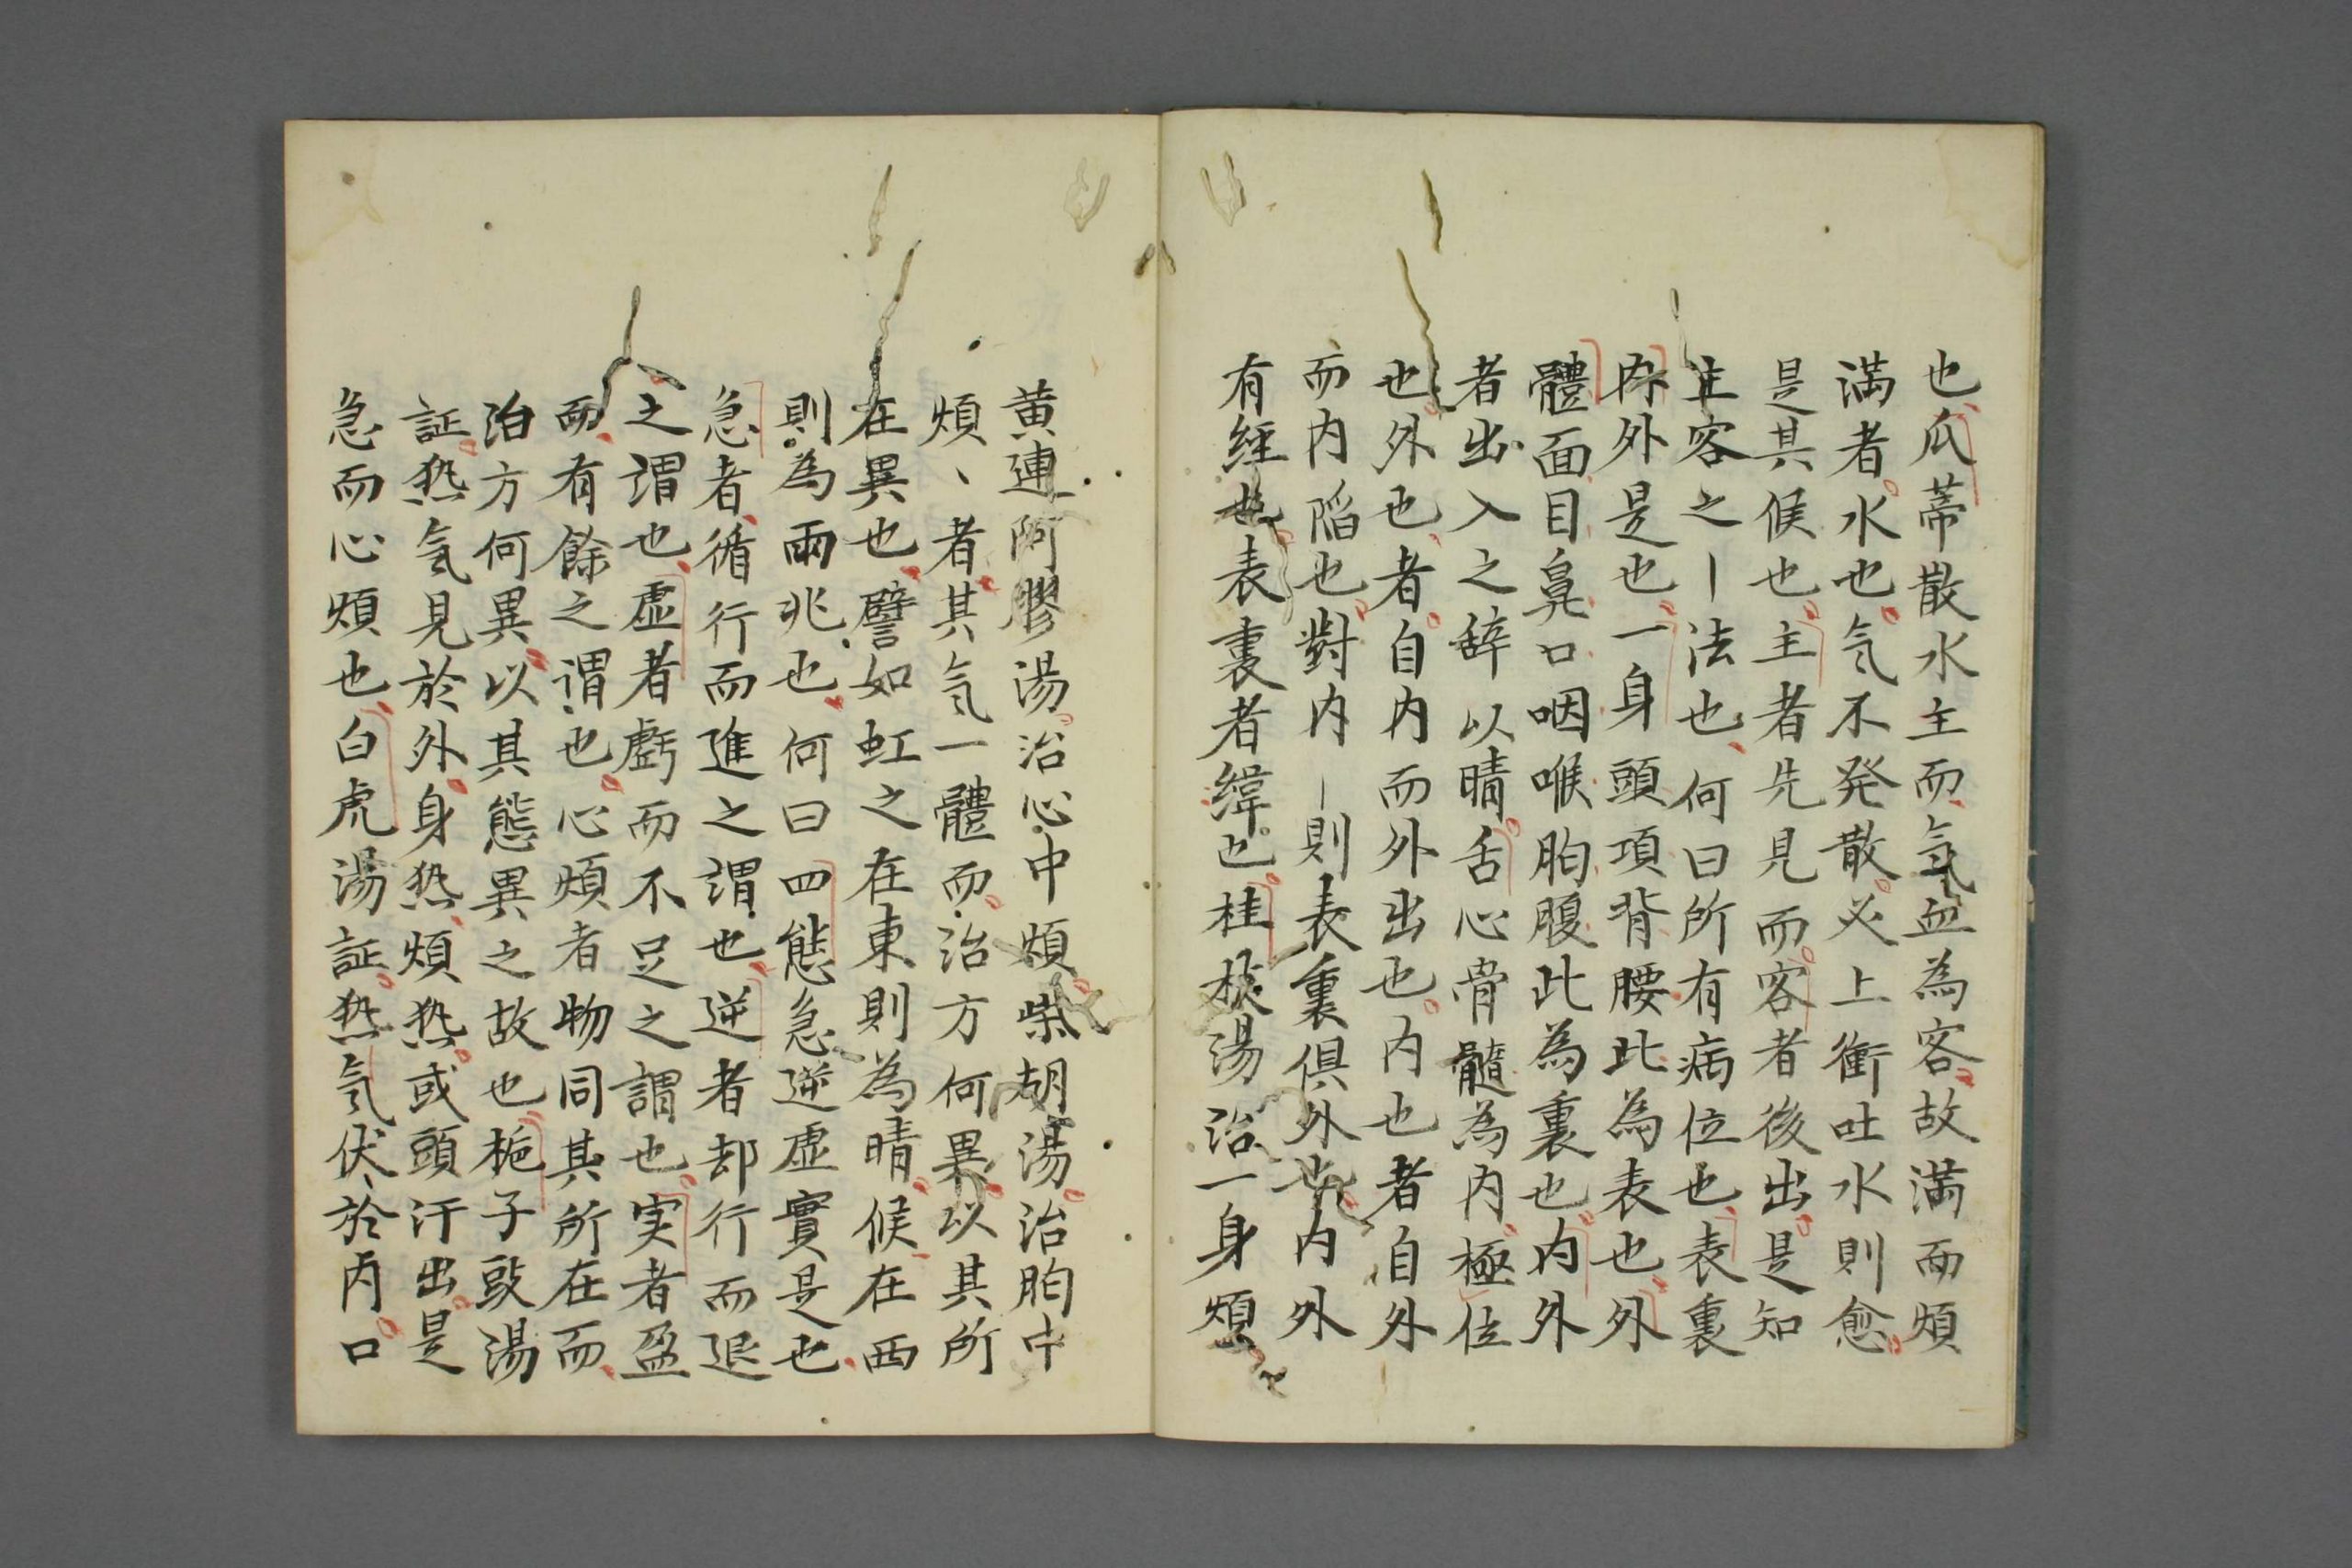 也瓜蒂散水主而氣血為客故満而煩
満者水也气不発散必上衝吐水則愈
是其候也主者先見而客者後出是知
主客之｜法也何曰所有病位也表裏
内外是也一身頭項背腰此為表也外
體面目鼻口咽喉胸腹此為裏也内外
者出入之辞以晴舌心骨髓為内極位
也外也者自内而外出也内也者自外
而内陷也對内｜則表裏俱外也内外
有經也表裏者緯也桂枝湯治一身煩
黄連阿膠湯治心中煩柴胡湯治胸中
煩、者其氣一體而治方何異以其所
在異也譬如虹之在東則為晴候在西
則為兩兆也何曰四態急逆虚實是也
急者循行而進之謂也逆者却行而退
之謂也虚者虧而不足之謂也実者盈
而有餘之謂也心煩者物同其所在而
治方何異以其態異之故也梔子豉湯
証热氣見於外身热煩热或頭汗出是
急而心煩也白虎湯証热氣伏於内口